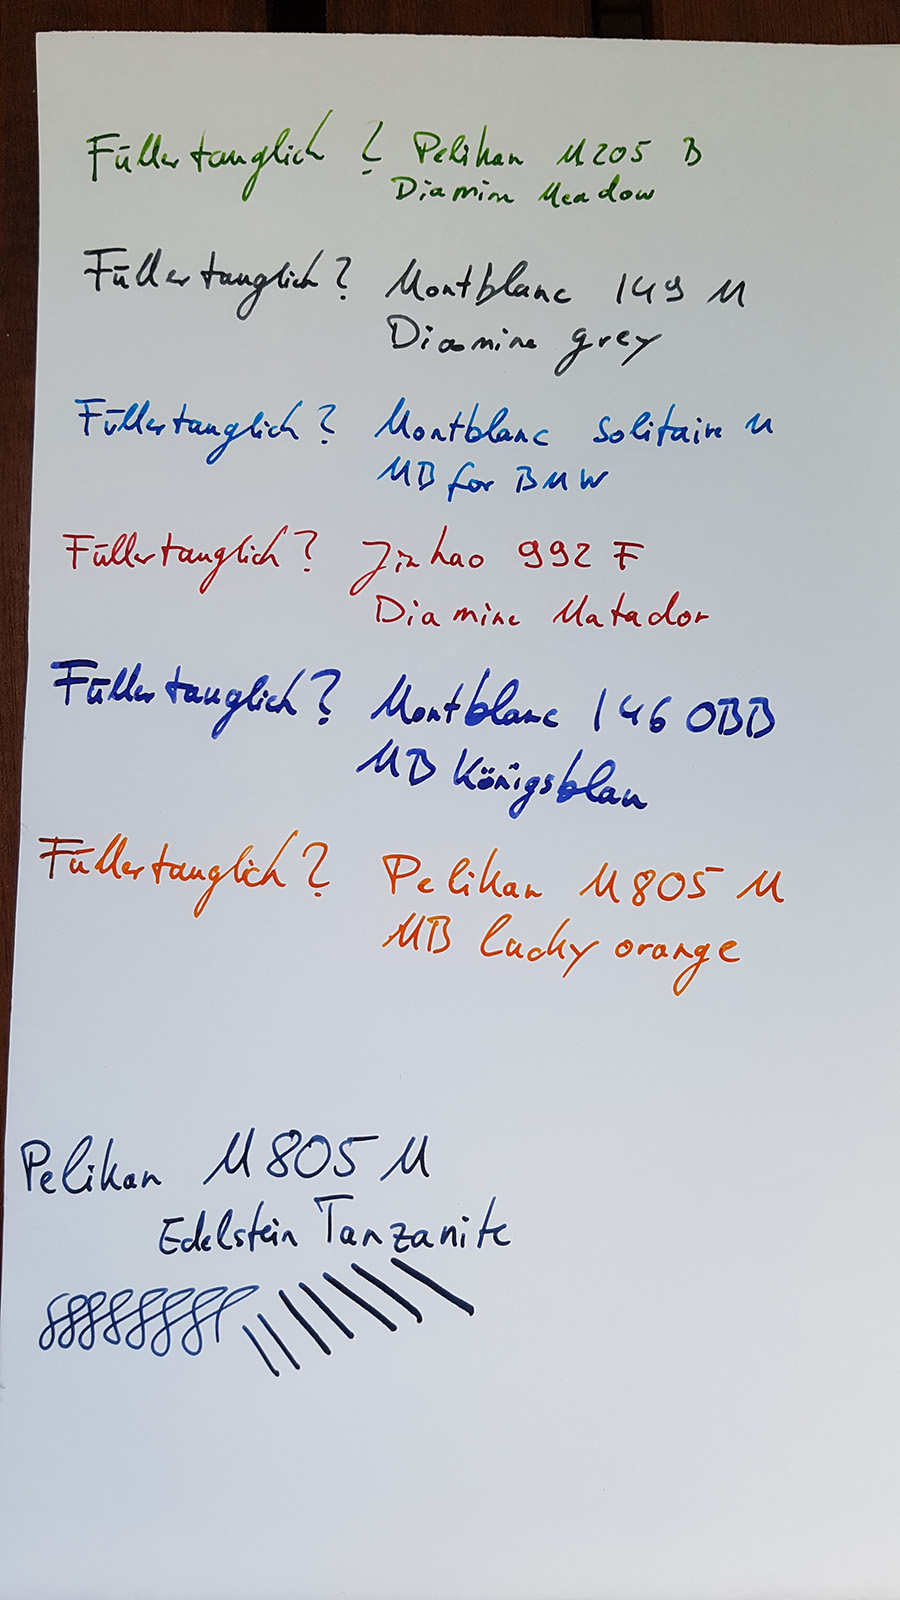 Füllertauglich? Pelikan M205 B
Diamine Meadow
Füllertauglich? Montblanc 149 M
Diamine grey
Füllertauglich? Montblanc Solitaire M
MB for BMW
Füllertauglich? Jinhao 992 F
Diamine Matador
Füllertauglich? Montblanc 146 OBB
MB Königsblau
Füllertauglich? Pelikan M805 M
MB lucky orange
Pelikan M805 M
Edelstein Tanzanite